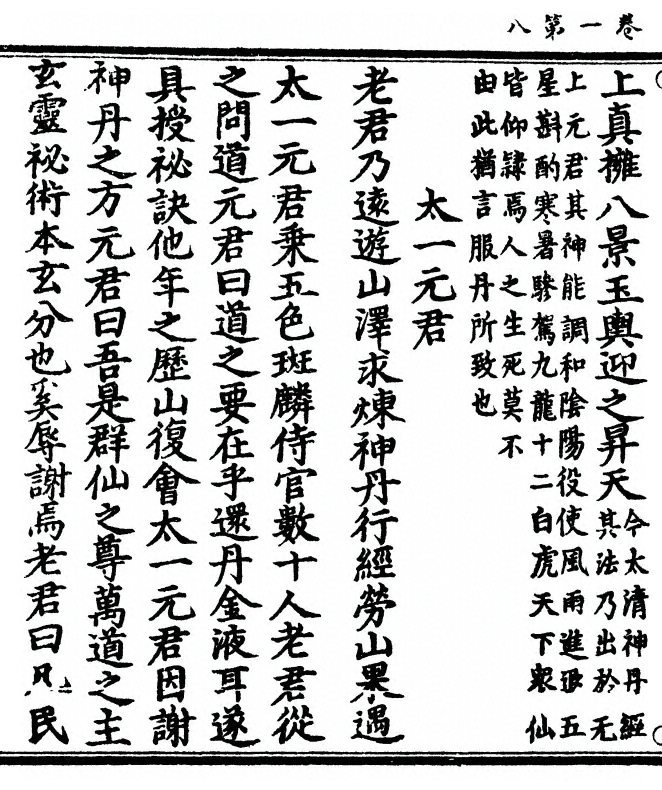 卷一第八
上真擁八景玉輿迎之昇天今太清神丹經
其法乃出於无
上元君其神能調和陰陽役使風雨進退五
星斟酌寒暑驂駕九龍十二白虎天下衆仙
皆仰隸焉人之生死莫不
由此猶言服丹所致也
太一元君
老君乃遠遊山澤求煉神丹行經勞山果遇
太一元君乘五色斑麟侍官數十人老君從
之問道元君曰道之要在乎還丹金液耳遂
具授祕訣他年之歷山復會太一元君因謝
神丹之方元君曰吾是群仙之尊萬道之主
玄靈祕術本玄分也奚辱謝焉老君曰凡民